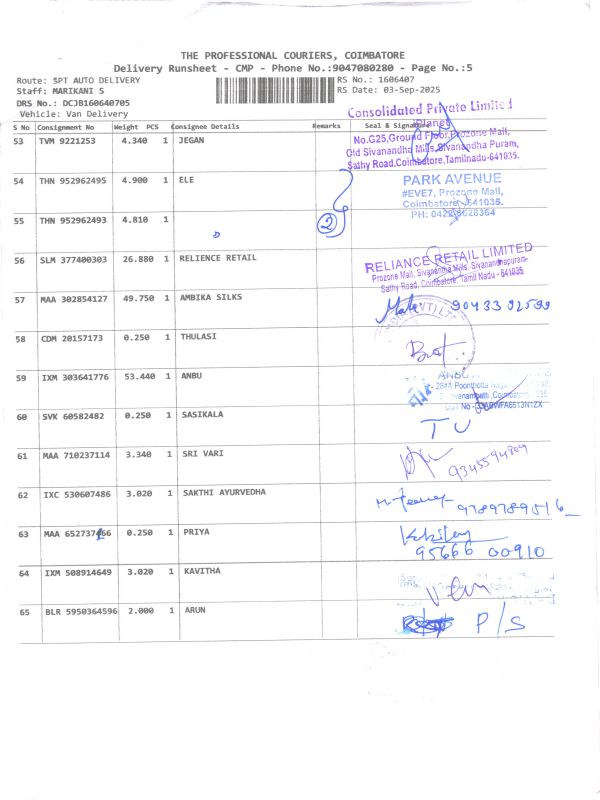 THE PROFESSIONAL COURIERS, COIMBATORE
Delivery Runsheet - CMP - Phone No.:9047080280 - Page No.:5
Route: SPT AUTO DELIVERY
RS No.: 1606407
Staff: MARIKANI S
RS Date: 03-Sep-2025
DRS No.: DCJB160640705
Vehicle: Van Delivery
Consolidated Private Limited
S No Consignment No Weight PCS Consignee Details Remarks Seal & Signature
Planet
53 TVM 9221253 4.340 1 JEGAN
No.G25,Ground Floor,Prozone Mall,
Old Sivanandha Mills,Sivanandha Puram,
Sathy Road,Coimbatore,Tamilnadu-641035.
54 THN 952962495 4.900 1 ELE
PARK AVENUE
#EVE7, Prozone Mall,
Coimbatore, 641035.
PH: 0422
55 THN 952962493 4.810 1
2
56 SLM 377400303 26.880 1 RELIENCE RETAIL
RELIANCE RETAIL LIMITED
Prozone Mall, Sivanandha Mills, Sivanandhapuram-
Sathy Road, Coimbatore, Tamil Nadu - 641035
57 MAA 302854127 49.750 1 AMBIKA SILKS
58 CDM 20157173 0.250 1 THULASI
59 IXM 303641776 53.440 1 ANBU
60 SVK 60582482 0.250 1 SASIKALA
TU
61 MAA 710237114 3.340 1 SRI VARI
62 IXC 530607486 3.020 1 SAKTHI AYURVEDHA
9789789516
63 MAA 652737166 0.250 1 PRIYA
95666 00910
64 IXM 508914649 3.020 1 KAVITHA
65 BLR 5950364596 2.000 1 ARUN
P/S